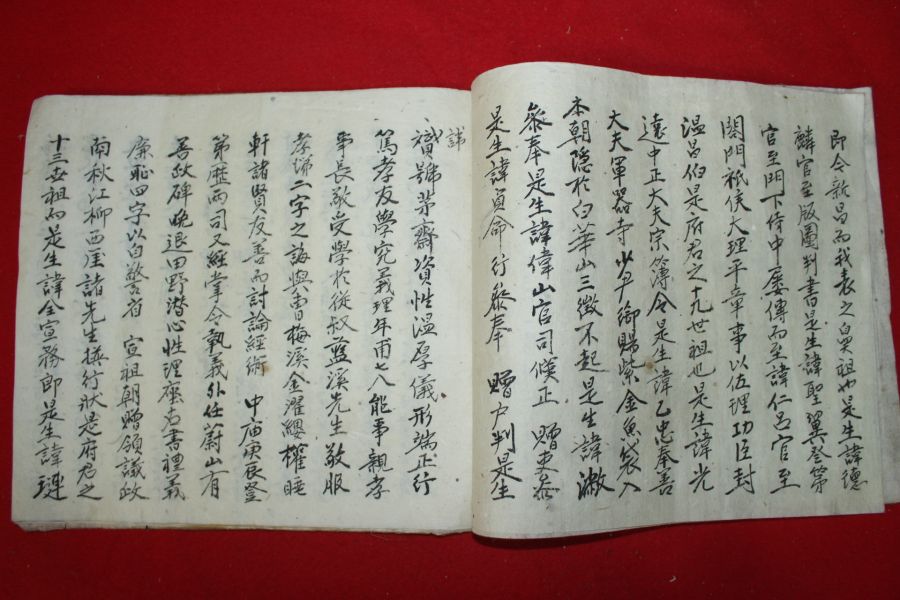 即今新昌而我表之白眾祖也是生諱德
麟官至版圖判書是生諱聖翼登第
官至門下侍中屢傳而至諱仁呂官至
閤門祗侯大理平章事以伍理功臣封
溫昌伯是府君之十九世祖也是生諱光
遠中正大夫宗簿令是生諱乙忠奉善
大夫軍器寺少尹御賜紫金魚袋入
本朝隱於白華山三徵不起是生諱瀲
參奉是生諱偉山官司僕正 贈吏參
是生諱貟命行參奉 贈戶判是生
諱
號茅齋資性溫厚儀形端正行
篤孝友學究義理年甫七八能事親孝
事長敬受學於從叔藍溪先生敬服
孝悌二字之誨與曺梅溪金濯纓權睡
軒諸賢友善而討論經術 中庙庚辰登
第歷兩司又經掌令執義外任蔚山有
善政碑晩退田野潜心性理座右書禮義
廉恥四字以自警省 宣祖朝贈領議政
南秋江柳西厓諸先生撰行狀是府君之
十三世祖而是生諱全宣務郎是生諱璉